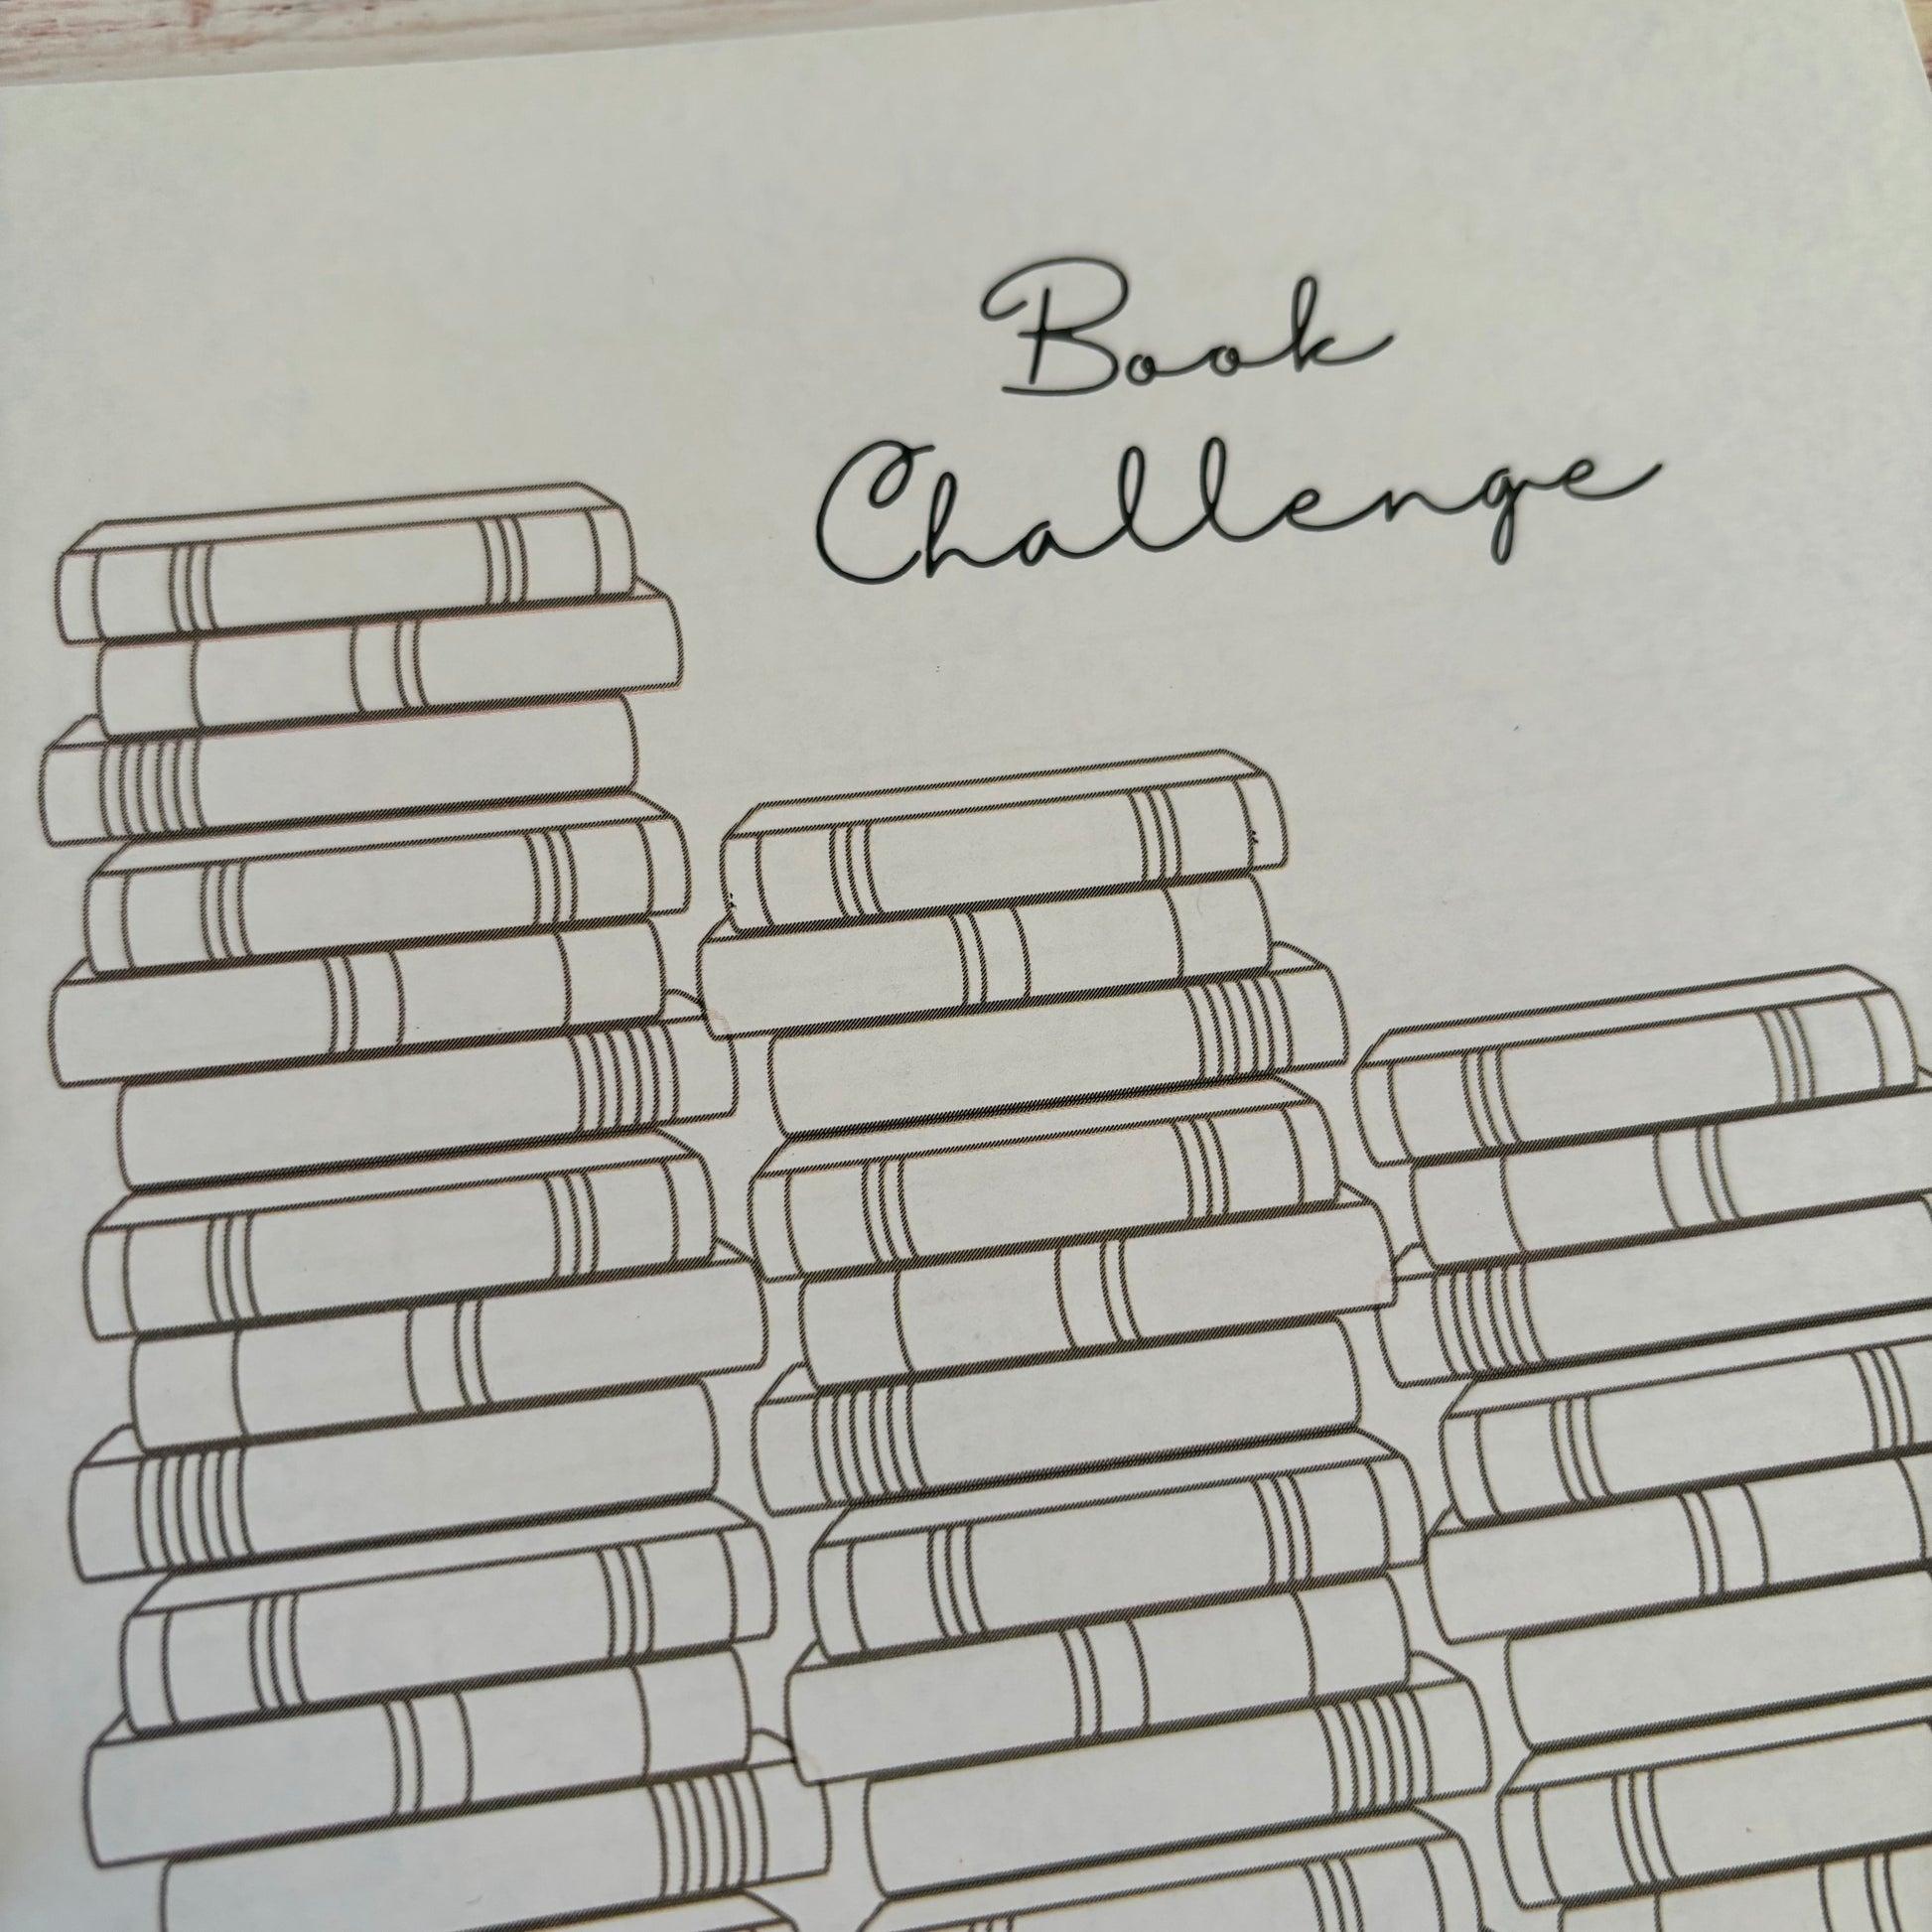 Book
Challenge